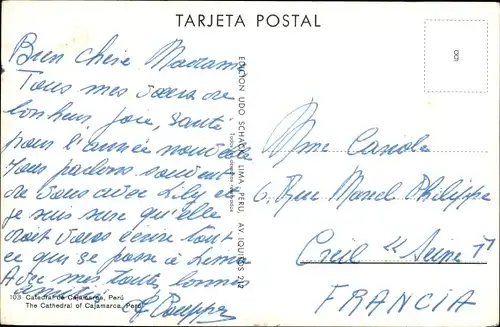 TARJETA POSTAL
Bien chère Madame
Tous mes vœux de
bonheur, joie, santé
pour l'année nouvelle
Nous parlons souvent
de vous avec Lily et
je suis sure qu'elle
doit vous écrire tout
ce qui se passe à Lima
Avec mes toutes bonnes
amitiés
103 Catedral de Cajamarca, Perú
The Cathedral of Cajamarca, Peru
EDICION UDO SCHACK, LIMA - PERU, AV. IQUITOS 212
Todos los derechos reservados
Mme
6, Rue Marcel Philippe
Creil "Seine"
FRANCIA